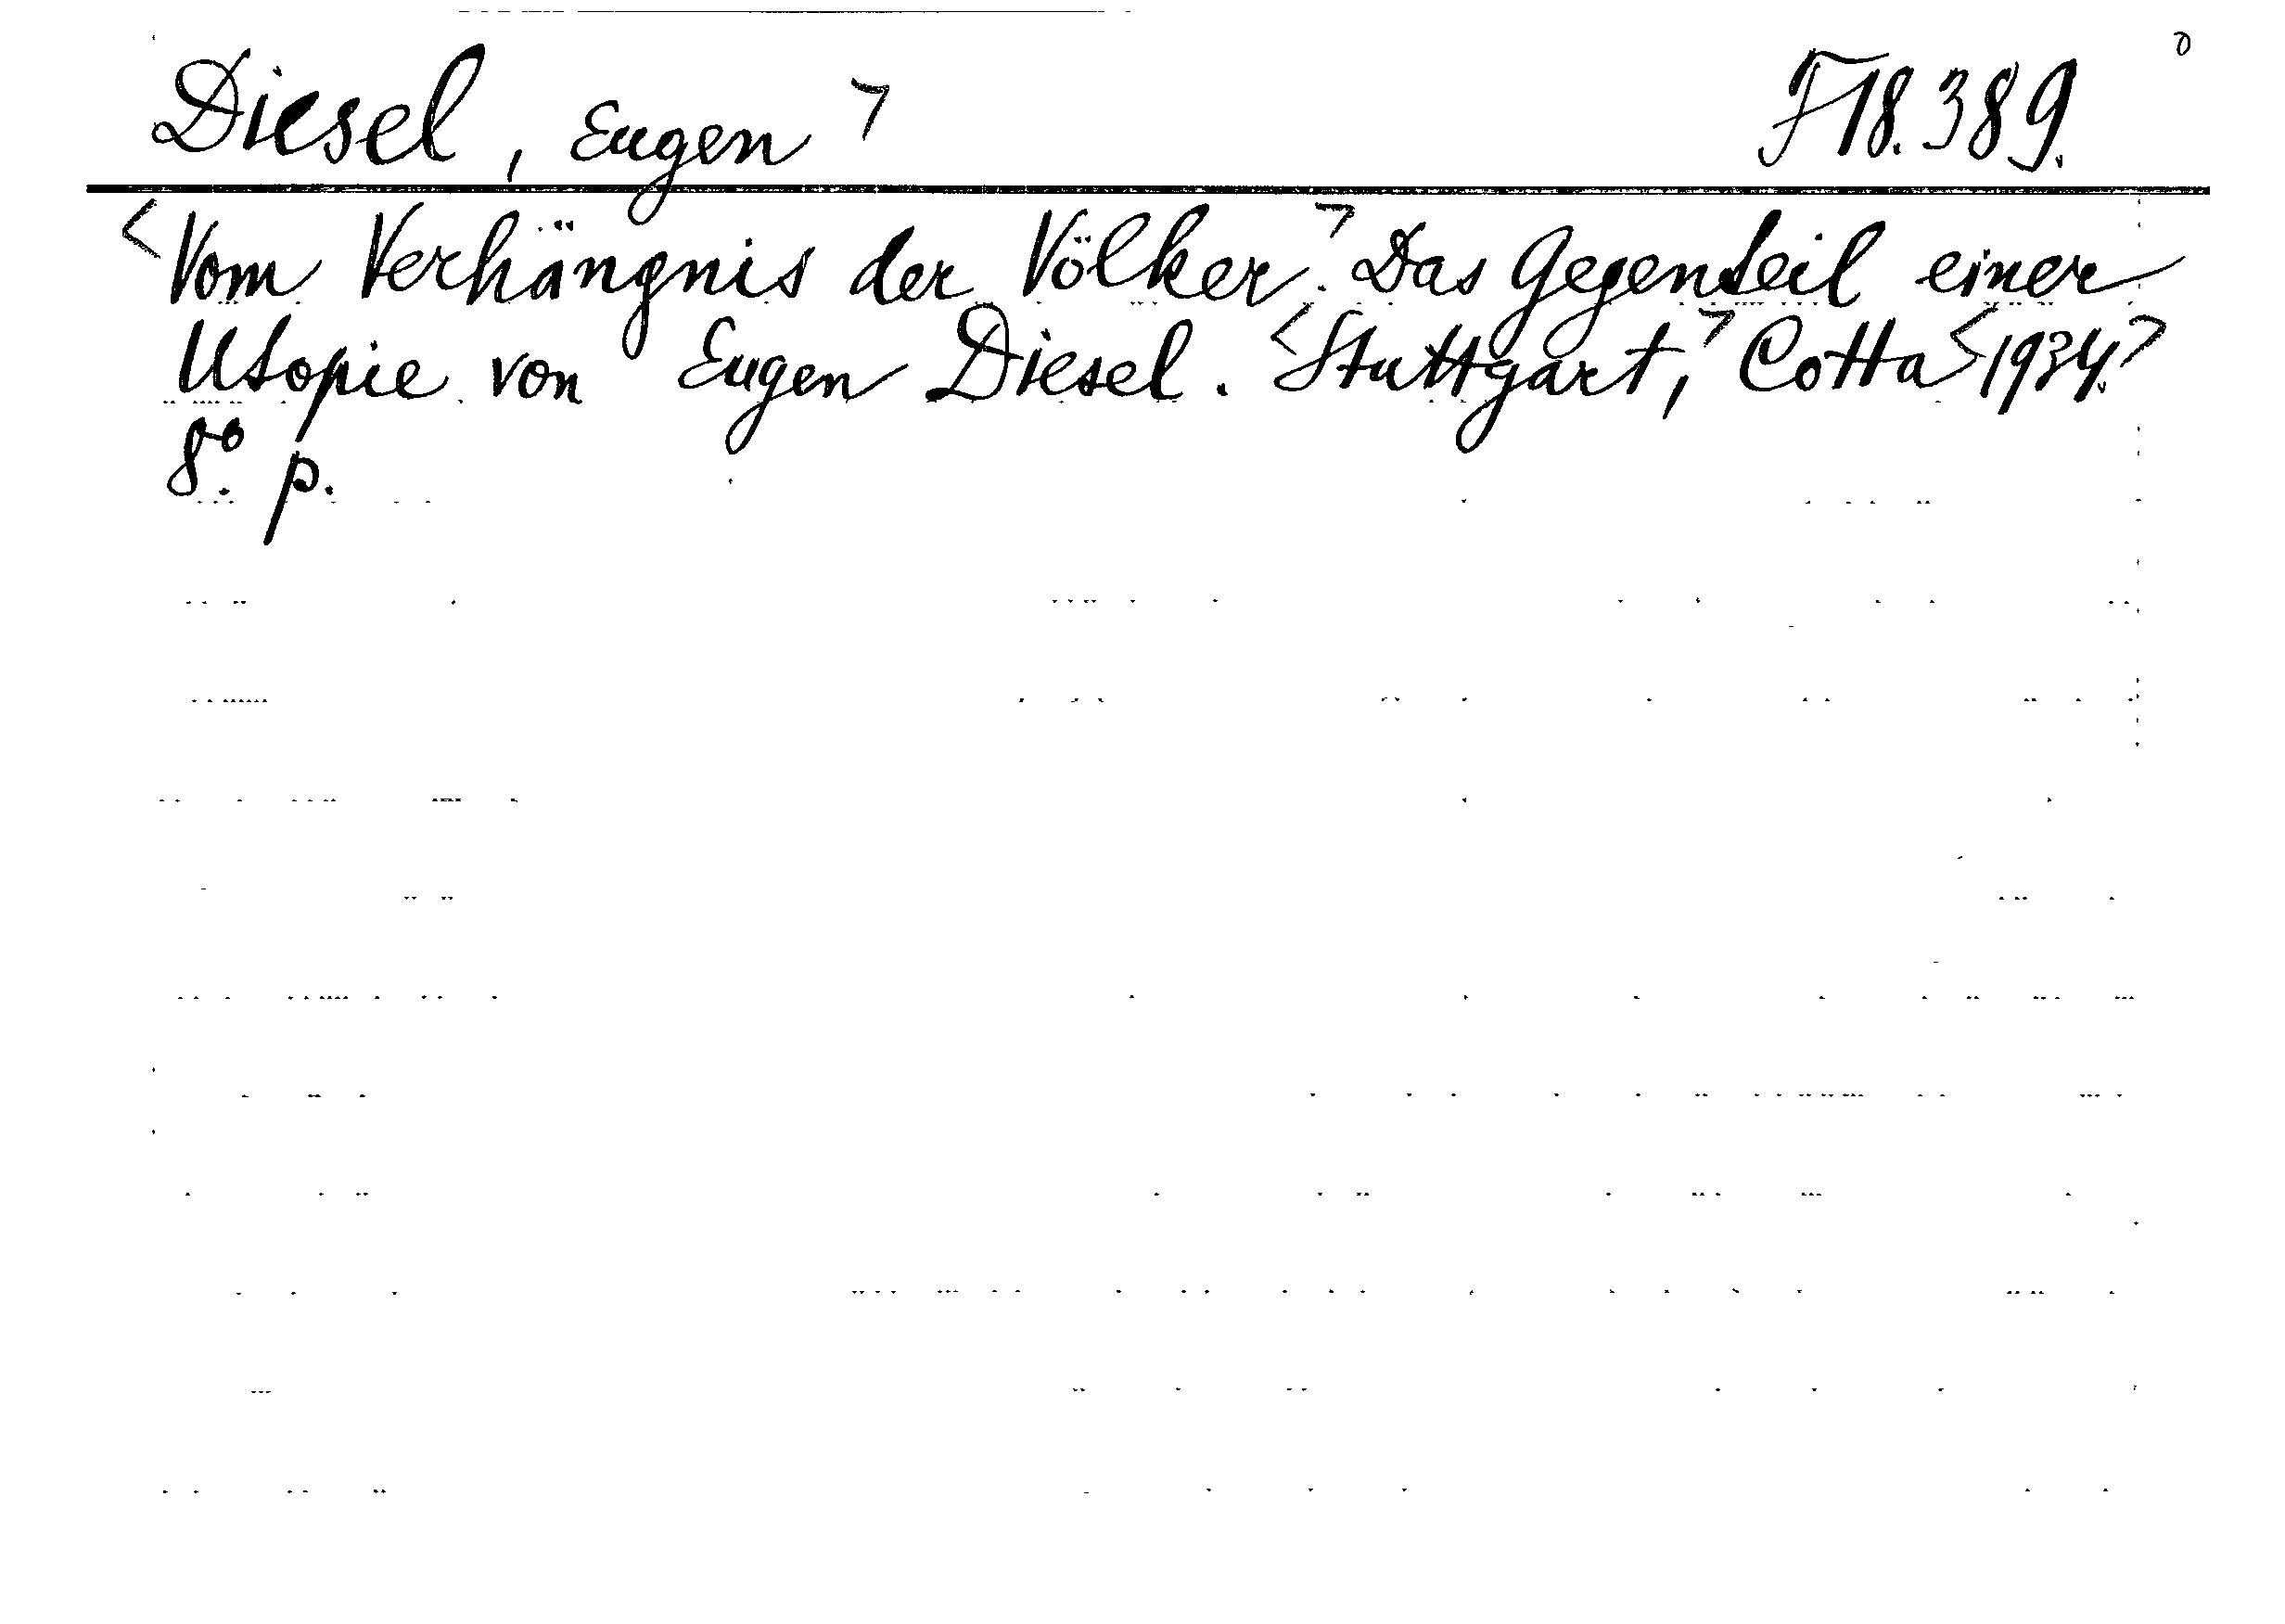 Diesel, Eugen > F 18.389.
<Vom Verhängnis der Völker.> Das Gegenteil einer
Utopie von Eugen Diesel. <Stuttgart,> Cotta <1934.>
8º. p.